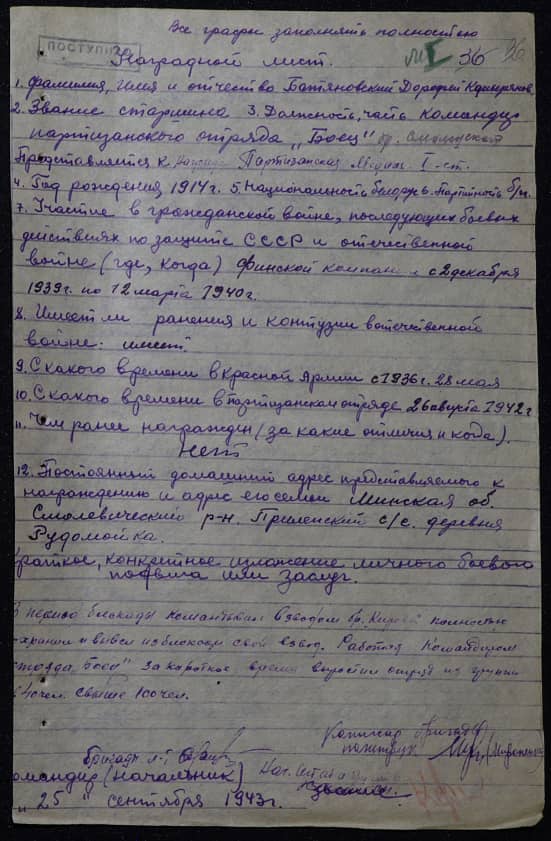 Все графы заполнять полностью
ПОСТУПИЛО
36 36
Наградной лист.
1. Фамилия, имя и отчество Батяновский Дорофей
2. Звание старшина 3. Должность, часть командир
партизанского отряда „Боец" бр. Смолевичская
Представляется к награде Партизанская Медаль I-ст.
4. Год рождения 1914г. 5. Национальность белорус 6. Партийность б/п.
7. Участие в гражданской войне, последующих боевых
действиях по защите СССР и отечественной
войне (где, когда) Финской компани и с 2 декабря
1939г. по 12 марта 1940г.
8. Имеет ли ранения и контузии в отечественной
войне: имеет.
9. С какого времени в Красной Армии с 1936г. 28 мая
10. С какого времени в партизанском отряде 26 августа 1942г.
11. Чем ранее награжден (за какие отличия и когда).
Нет
12. Постоянный домашний адрес представляемого к
награждению и адрес его семьи Минская об.
Смолевический р-н. Прилепский с/с. деревня
Рудомойка.
Краткое, конкретное изложение личного боевого
подвига или заслуг.
В период блокады командывал взводом бр. Кирова полностью
сохранил и вывел из блокады свой взвод. Работая командиром
отряда „Боец" за короткое время вырастил отряд из группы
чел. свыше 100 чел.
Комиссар бригады
политрук
бригады
Командир (начальник)
„25" сентября 1943г.